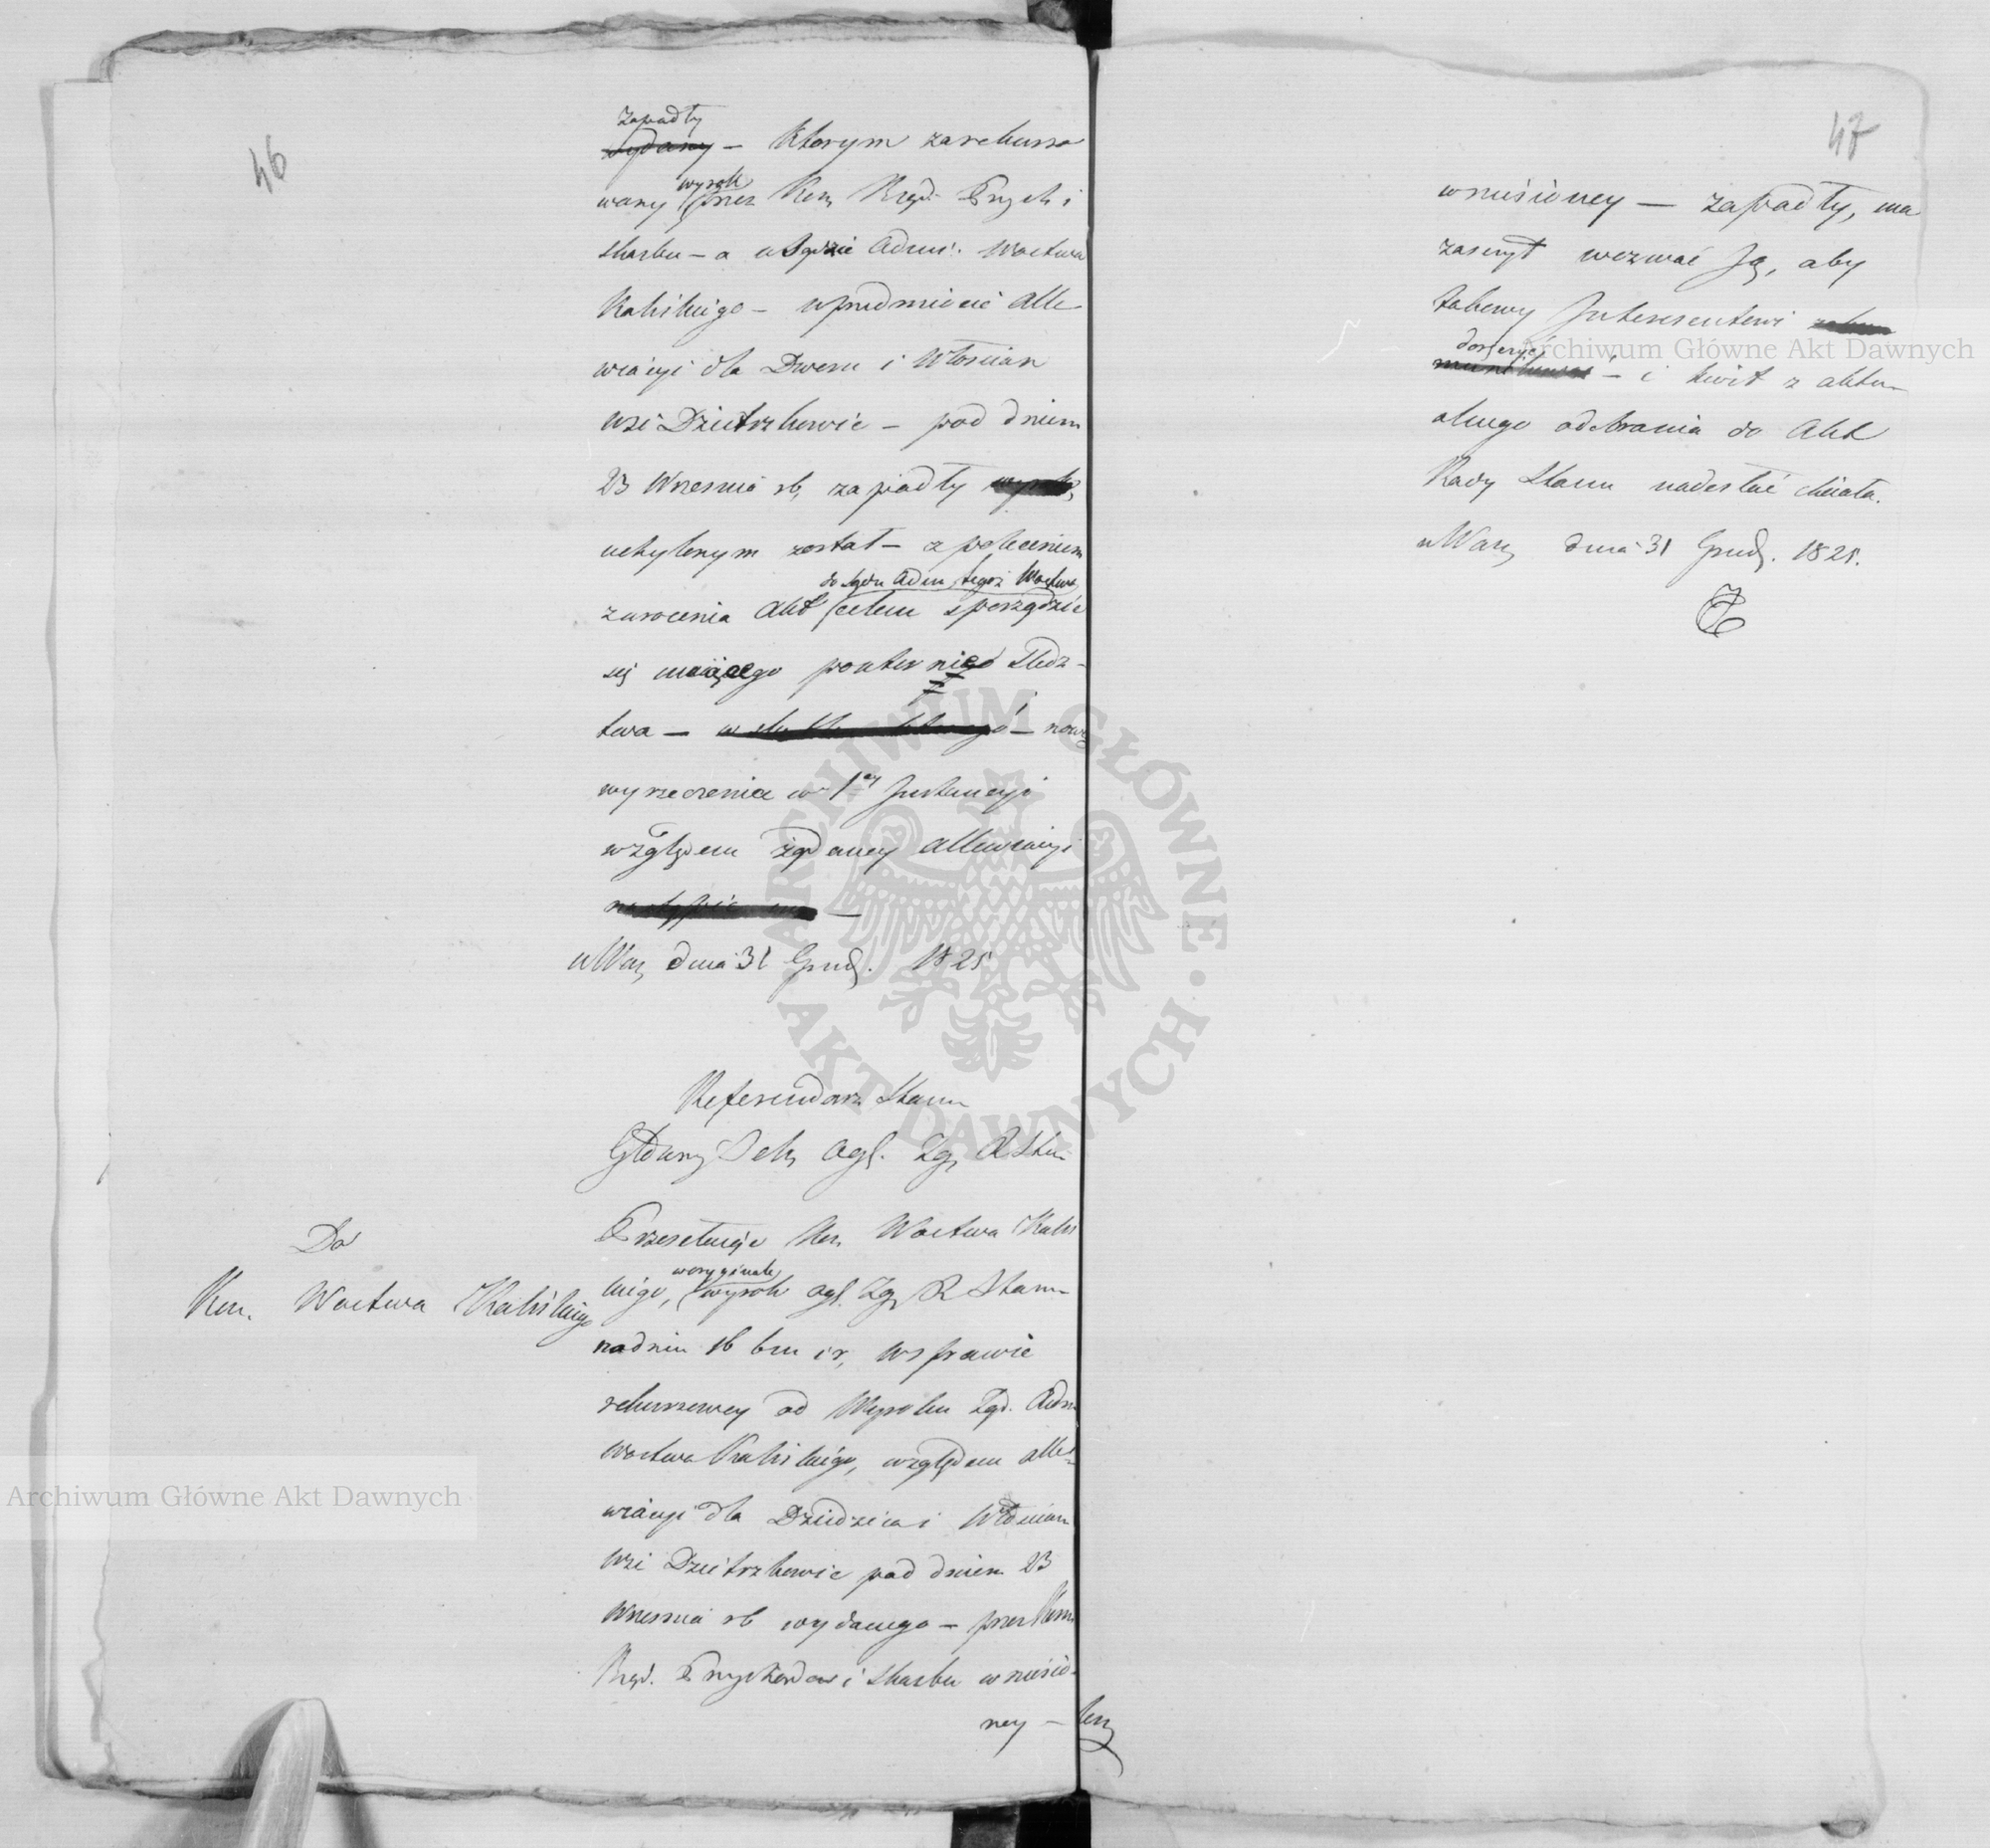 46
zapadły
wydany – którym zarekurso
wany wyrok przez Kom. Rząd. Przych i
skarbu – a w Sądzie Admi. Woctwa
Kaliskiego – w przedmiocie alle
wiacyi dla Dworu i Włościan
wsi Dzietrzkowic – pod dniem
23 Września rb, zapadły wyrok,
uchylonym został – z poleceniem
do Sądu Adm. tegoż Woctwa
zwrócenia Akt celem sporządzić
się mającego powtórnego śledz-
twa – w skutku którego – nowe
wyrzeczenia w 1ey Instancyi
względem żądaney allewiacyi
nastąpić ma –
w War, dnia 31 Grud. 1825
Referendarz Stanu
Główny Sek, Ogl. Zg, R Stu
Do
Kom. Woctwa Kaliskiego
Przesełając Kom. Woctwa Kalis
kiego, w oryginale wyrok Ogl. Zg, R Stanu
na dniu 16 bm i r, w sprawie
rekursowey od Wyroku Zgr. Adm
Woctwa Kaliskiego, względem alle-
wiacyi dla Dziedzica i Włościan
wsi Dzietrzkowic pod dniem 23
Września rb wydanego – przez Kom
Rząd. Przychodów i Skarbu wniesio-
ney –
47
wniesioney – zapadły, ma
zaszczyt wezwać Ją, aby
takowy Interesentowi
doręczyć – i kwit z aktu-
alnego odebrania do Akt
Rady Stanu nadesłać chciała.
w War, dnia 31 Grud. 1825.
Archiwum Główne Akt Dawnych
Archiwum Główne Akt Dawnych
ARCHIWUM GŁÓWNE • AKT DAWNYCH •